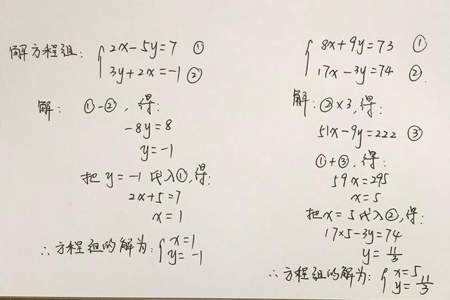 解方程组: { 2x-5y=7 ①
3y+2x=-1 ②
解: ①-②, 得:
-8y=8
y=-1
把 y=-1 代入①, 得:
2x+5=7
x=1
∴方程组的解为: { x=1
y=-1
{ 8x+9y=73 ①
17x-3y=74 ②
解: ②×3, 得:
51x-9y=222 ③
①+③, 得:
59x=295
x=5
把 x=5 代入②, 得:
17×5-3y=74
y=11/3
∴方程组的解为: { x=5
y=11/3